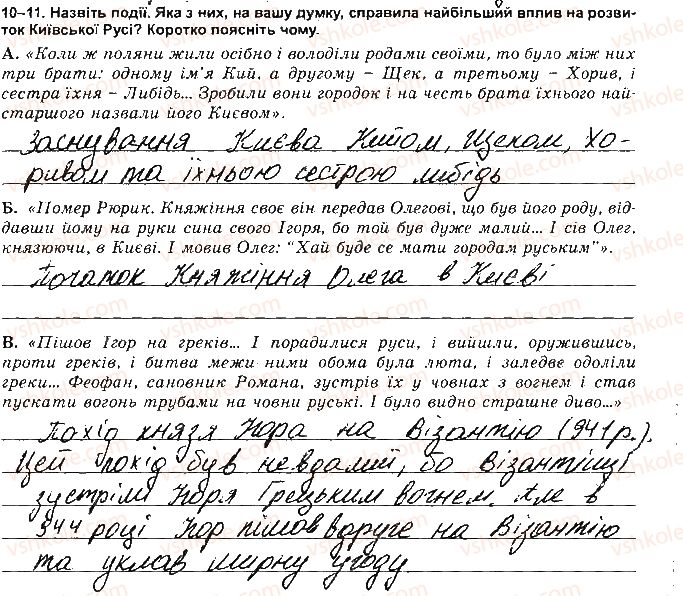 10–11. Назвіть події. Яка з них, на вашу думку, справила найбільший вплив на розви-
ток Київської Русі? Коротко поясніть чому.
А. «Коли ж поляни жили осібно і володіли родами своїми, то було між них
три брати: одному ім'я Кий, а другому – Щек, а третьому – Хорив, і
сестра їхня – Либідь... Зробили вони городок і на честь брата їхнього най-
старшого назвали його Києвом».
Заснування Києва Кийом, Щеком, Хо-
ривом та їхньою сестрою либідь
Б. «Помер Рюрик. Княжіння своє він передав Олегові, що був його роду, від-
давши йому на руки сина свого Ігоря, бо той був дуже малий... І сів Олег,
князюючи, в Києві. І мовив Олег: "Хай буде се мати городам руським"».
Початок Княжіння Олега в Києві
В. «Пішов Ігор на греків... І порадилися руси, і вийшли, оружившись,
проти греків, і битва межи ними обома була люта, і заледве одоліли
греки... Феофан, сановник Романа, зустрів їх у човнах з вогнем і став
пускати вогонь трубами на човни руські. І було видно страшне диво...»
Похід князя Ігора на Візантію (941 р.).
Цей похід був невдалий, бо візантійці
зустріли Ігоря Грецьким вогнем. Але в
944 році Ігор пішов вдруге на Візантію
та уклав мирну угоду
vshkole.com